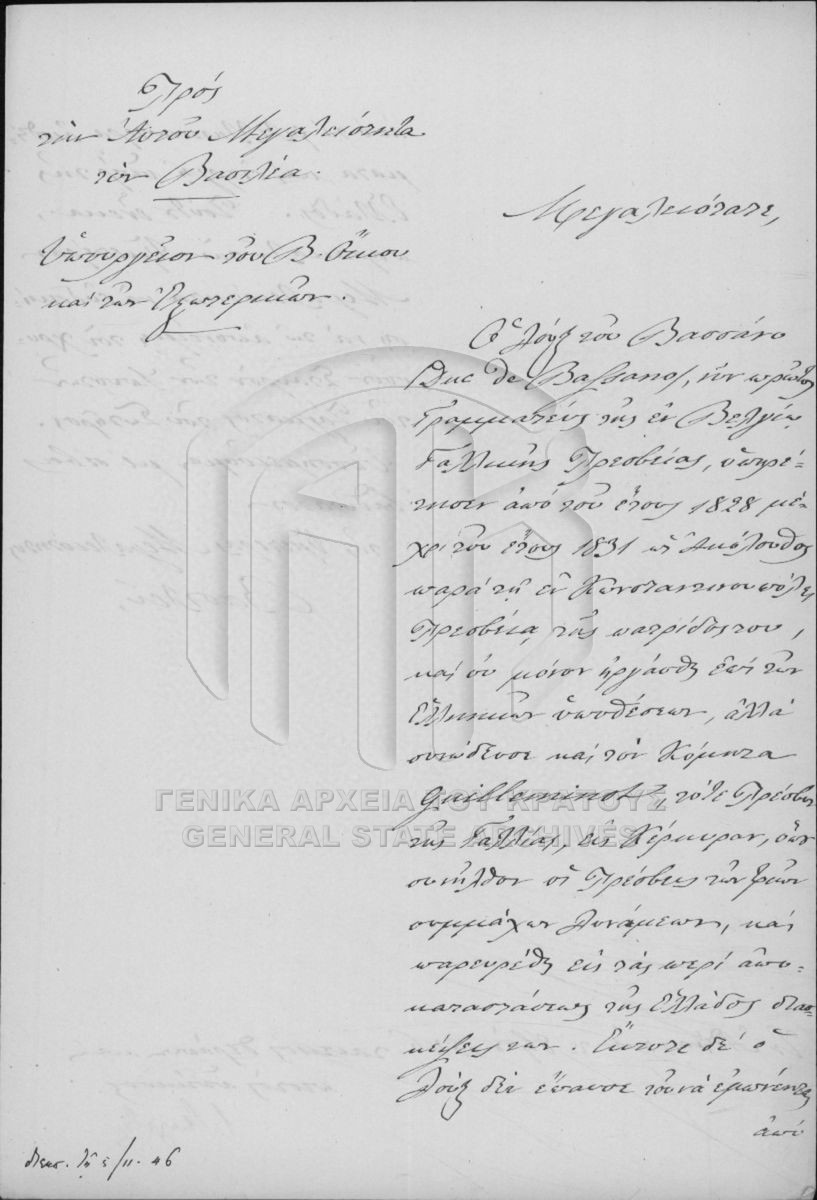 Πρός
τὴν Αὐτοῦ Μεγαλειότητα
τὸν Βασιλέα.
Ὑπουργεῖον τοῦ Β. Οἴκου
καὶ τῶν Ἐξωτερικῶν.
Μεγαλειότατε,
Ὁ Δοὺξ τοῦ Βασσάνο
(Duc de Bassano), νῦν πρῶτος
Γραμματεὺς τῆς ἐν Βελγίῳ
Γαλλικῆς Πρεσβείας, ὑπηρέ-
τησεν ἀπὸ τοῦ ἔτους 1828 μέ-
χρι τοῦ ἔτους 1831 ὡς Ἀκόλουθος
παρὰ τῇ ἐν Κωνσταντινουπόλει
Πρεσβείᾳ τῆς πατρίδος του,
καὶ οὐ μόνον ἠργάσθη ἐπὶ τῶν
Ἑλληνικῶν ὑποθέσεων, ἀλλὰ
συνώδευσε καὶ τὸν Κόμητα
Guilleminot, τότε Πρέσβυν
τῆς Γαλλίας, εἰς Κέρκυραν, ὅπου
συνῆλθον οἱ Πρέσβεις τῶν τριῶν
συμμάχων Δυνάμεων, καὶ
παρευρέθη εἰς τὰς περὶ ἀπο-
καταστάσεως τῆς Ἑλλάδος διασ-
κέψεις των. Ἔκτοτε δὲ ὁ
Δοὺξ δὲν ἔπαυσε τοῦ νὰ ἐμπνέηται
ἀπὸ
ΓΕΝΙΚΑ ΑΡΧΕΙΑ ΤΟΥ ΚΡΑΤΟΥΣ
GENERAL STATE ARCHIVES
διεκπ. τῇ 5/11. 46